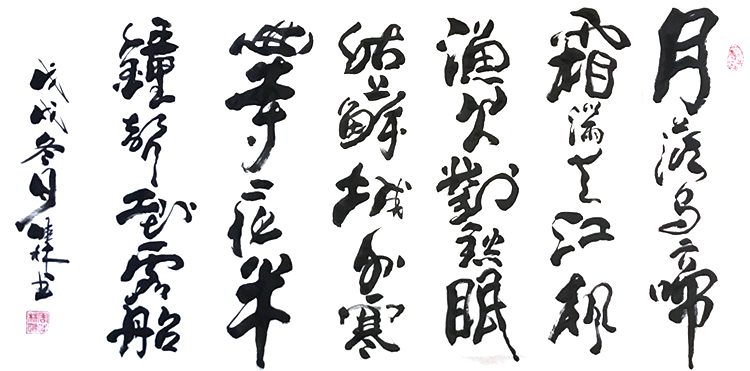 月落烏啼
霜滿天江楓
漁火對愁眠
姑蘇城外寒
山寺夜半
鐘聲到客船
戊戌冬月林書